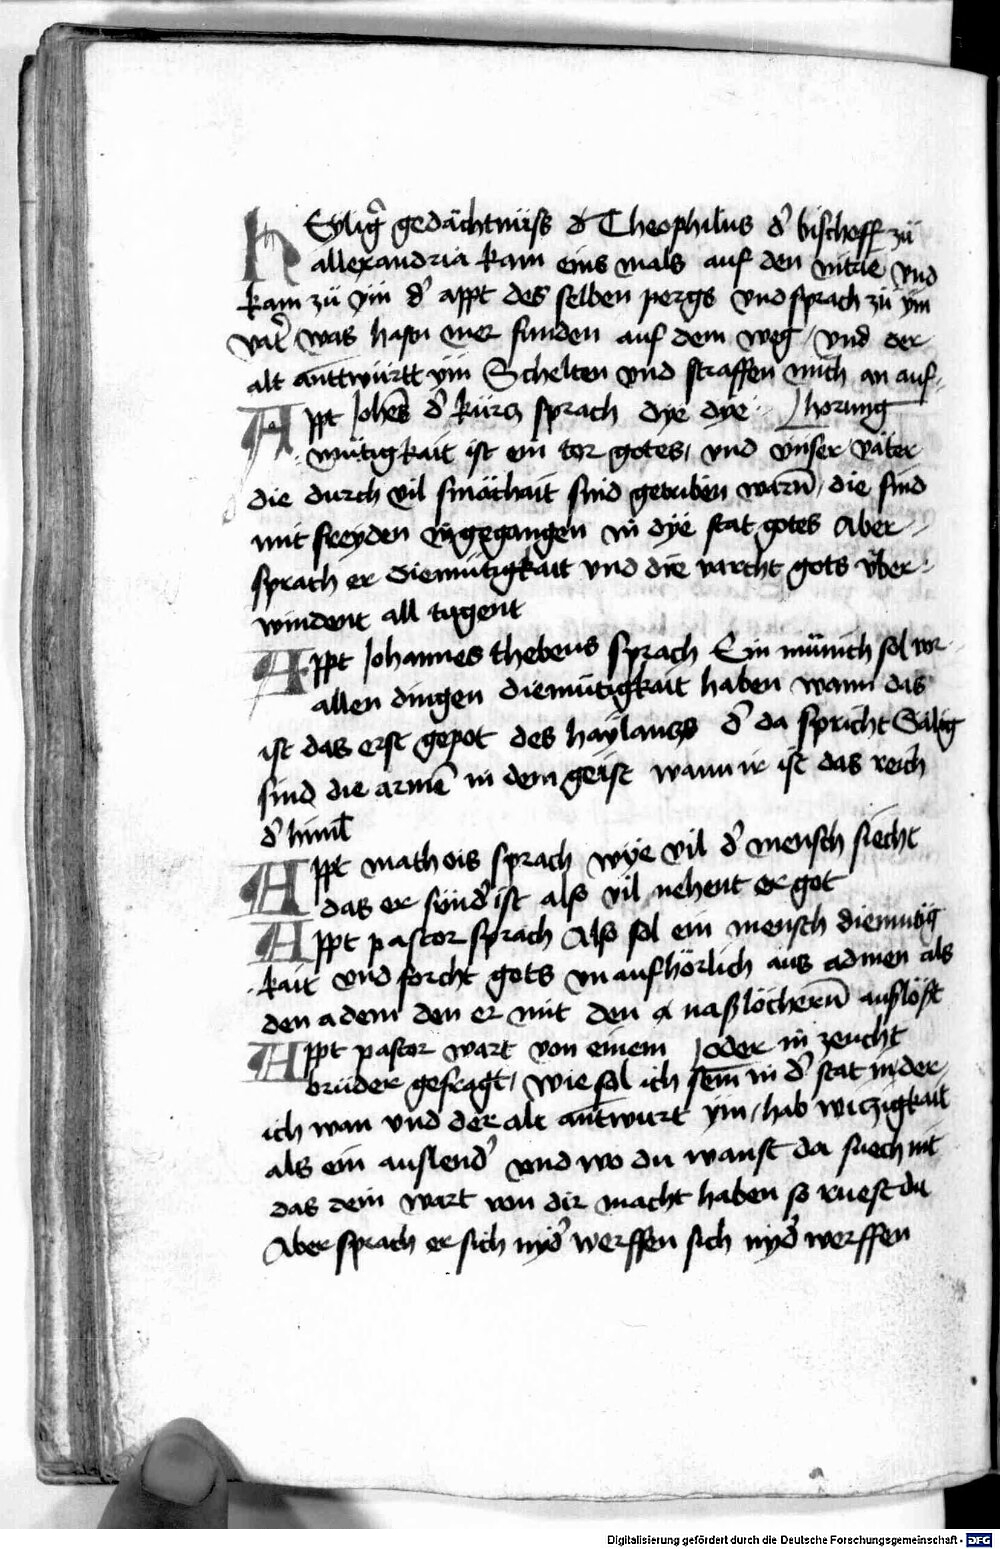 HEylig̃ gedächtnüss d̕ Theophilus d̕ bischoff zü
allexandria kam eins mals auf den nitrie vnd
kam zü yin d̕ appt des selben pergs vnd sprach zü ym
vat̕ was hastu mer funden auf dem weg / vnd der
alt anttwürtt ym Schelten vnd straffen mich an auf-
Appt Johēs d̕ kürcz sprach dye dye- / horung
mütigkait ist ein tor gotes / vnd vnser väter
die durch vil smächait sind getriben warn̄ / die sind
mit freyden eingegangen in dye stat gotes Aber
sprach er Diemütigkait vnd die varcht gots vber-
windent all tugent
Appt Johannes thebeus sprach Ein münich sol vor
allen dingen diemütigkait haben wann das
ist das erst gepot des haylancz d̕ da spricht Sälig
sind die armē in dem geist wann ir ist das reich
d̕ himl̄
Appt mathois sprach wye vil d̕ mensch siecht
das er sünd̕ ist also vil nehent er got
Appt pastor sprach Also sol ein mensch diemütig
kait vnd forcht gots vnaufhörlich aus admen als
den adem den er mit den naßlöchern̄ außlöst
Appt pastor wart von einem / oder in zeucht
brüder gefragt / wie sol ich sein in d̕ stat in der
ich wan vnd der alt antwurt ym / hab witzigkait
als ein auslend̕ vnd wo du wanst da suech nit
das dein wart von dir macht haben so ruest du
Aber sprach er sich nyd̕ werffen sich nyd̕ werffen
Digitalisierung gefördert durch die Deutsche Forschungsgemeinschaft - DFG